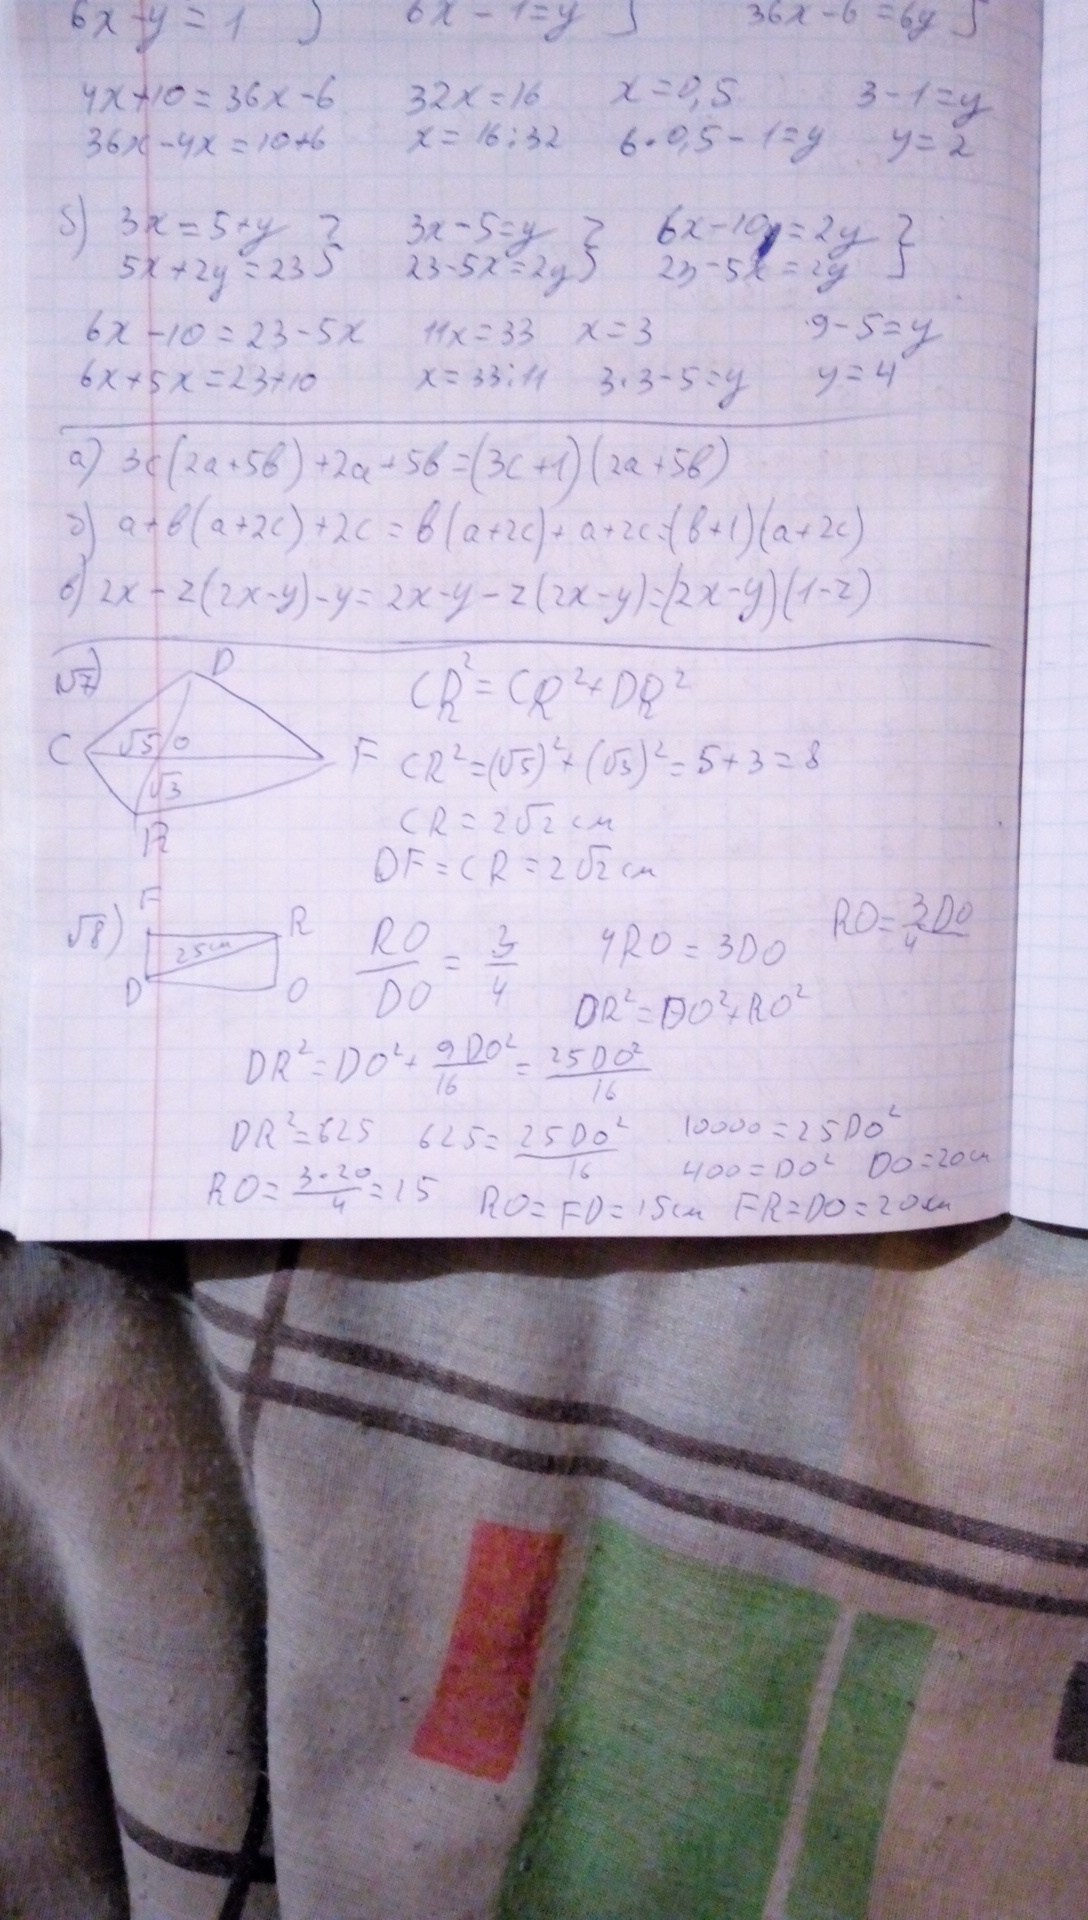 6x-y=1 } 6x-1=y } 36x-6=6y }
4x+10=36x-6 32x=16 x=0,5 3-1=y
36x-4x=10+6 x=16:32 6·0,5-1=y y=2
б) 3x=5+y } 3x-5=y } 6x-10=2y }
5x+2y=23 23-5x=2y 23-5x=2y
6x-10=23-5x 11x=33 x=3 9-5=y
6x+5x=23+10 x=33:11 3·3-5=y y=4
а) 3c(2a+5b)+2a+5b=(3c+1)(2a+5b)
б) a+b(a+2c)+2c=b(a+2c)+a+2c=(b+1)(a+2c)
в) 2x-z(2x-y)-y=2x-y-z(2x-y)=(2x-y)(1-z)
√7) D CR²=CR²+DR²
C √5 O F CR²=(√5)²+(√3)²=5+3=8
√3 CR=2√2см
R DF=CR=2√2см
√8) F R 25см D O RO/DO=3/4 4RO=3DO RO=3DO/4
DR²=DO²+RO²
DR²=DO²+9DO²/16=25DO²/16
DR²=625 625=25DO²/16 10000=25DO²
400=DO² DO=20см
RO=3·20/4=15 RO=FD=15см FR=DO=20см